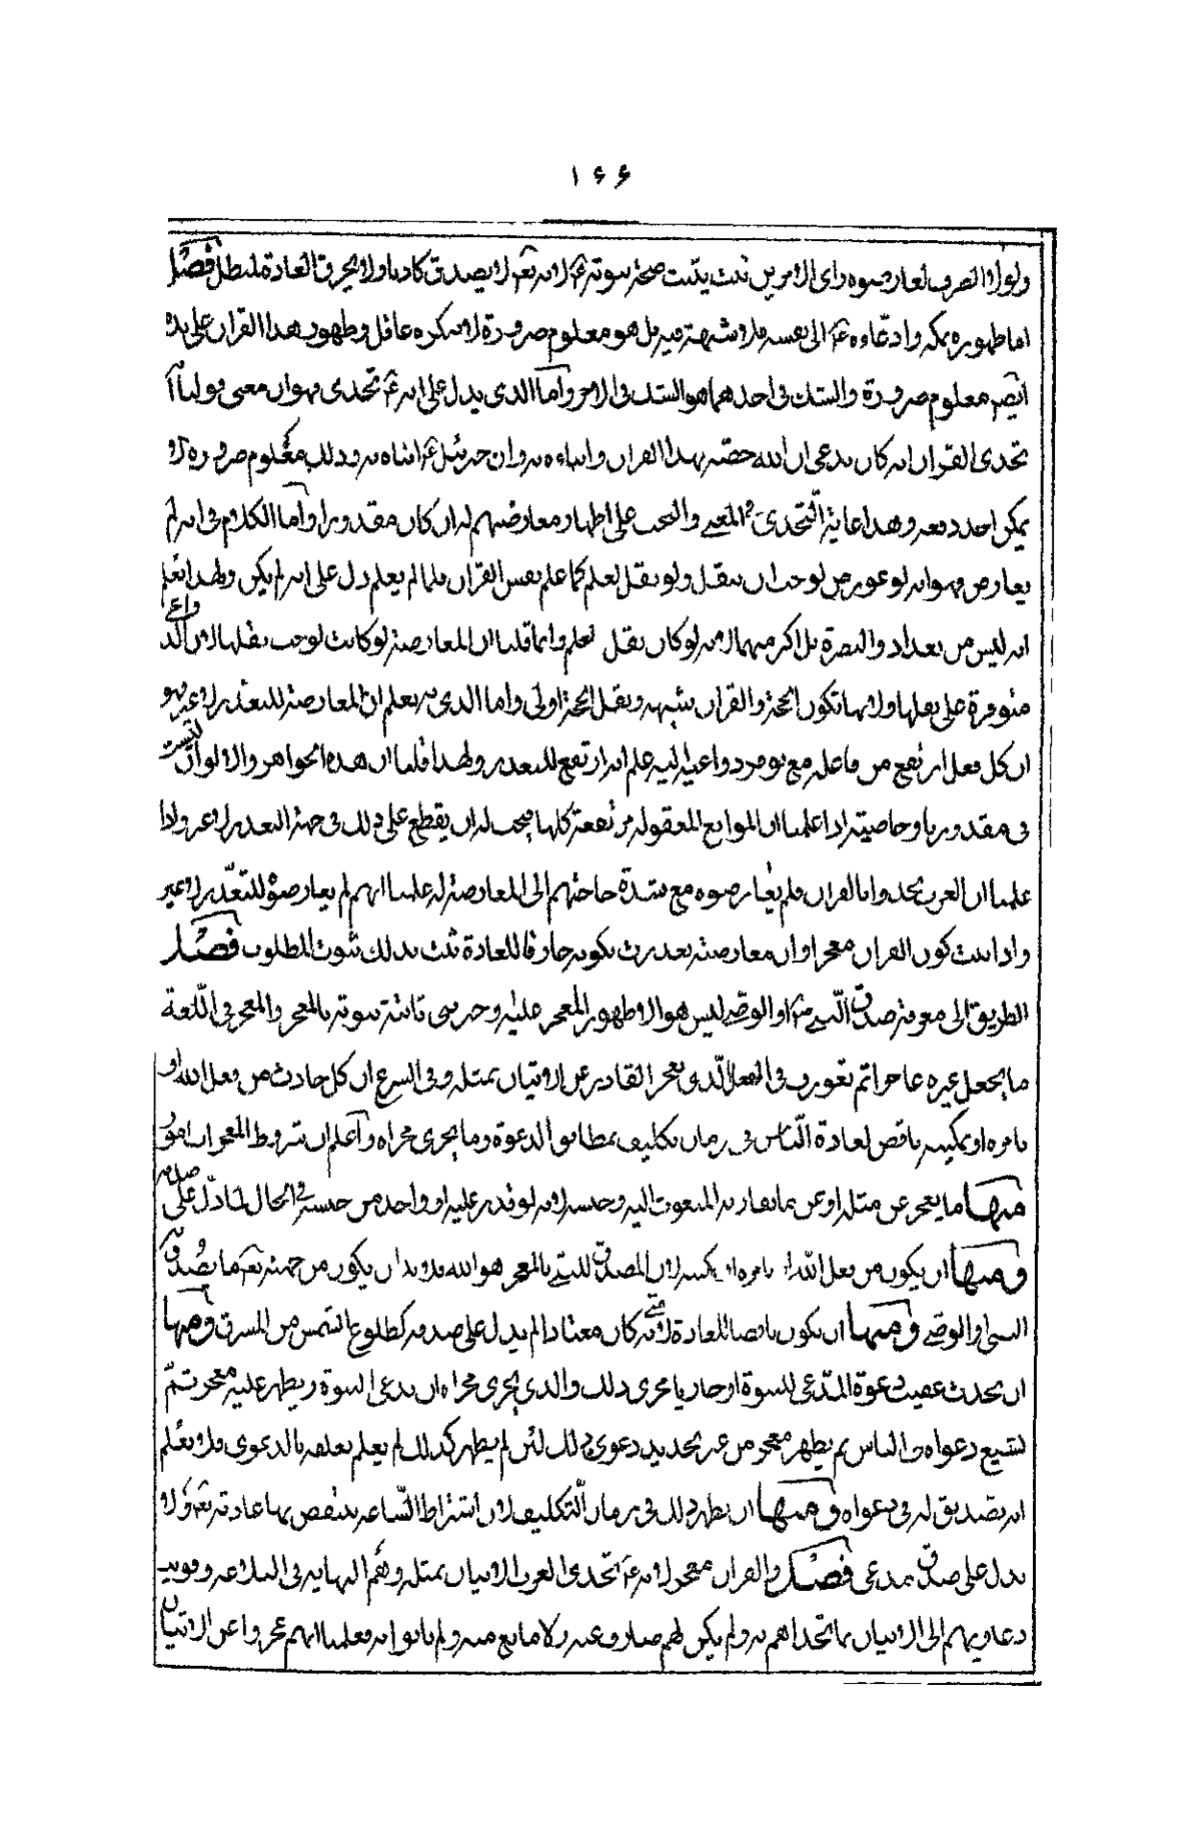 ۱۶۶
ولولا الصرف لعارضوه وای الامرین ثبت یثبت صحة نبوته ع لانه تعه لا یصدق کاذبا ولا یخرق العادة لمبطل فصل
اما ظهوره بمکه وادعاوه ع الی نفسه فلا شبهة فیه بل هو معلوم ضرورة لا ینکره عاقل وظهور هذا القران علی یده
ایضا معلوم ضرورة والشک فی احدهما هو الشک فی الاخر واما الذی یدل علی انه ع تحدی فهو ان معنی قولنا
تحدی القران انه کان یدعی ان الله خصه بهذا القران وانباءه به وان جبرئیل ع اتاه به وذلک معلوم ضرورة لا
یمکن احد دفعه وهذا غایة التحدی فی المعنی والبعث علی اظهار معارضتهم له ان کان مقدورا واما الکلام فی انه لم
یعارض فهو انه لو عورض لوجب ان ینقل ولو نقل لعلم کما علم نفس القران فلما لم یعلم دل علی انه لم یکن ولهذا نعلم
انه لیس بین بغداد والبصرة بلد اکبر منهما لانه لو کان لنقل وعلم وانما قلنا ان المعارضة لو کانت لوجب نقلها لان الدواعی
متوفرة علی نقلها ولانها تکون الحجة والقران شبهه ونقل الحجة اولی واما الذی به یعلم ان المعارضة للتعذر لا غیر فهو
ان کل فعل ارتفع من فاعله مع توفر دواعیه الیه علم انه ارتفع للتعذر ولهذا قلنا ان هذه الجواهر والالوان لیست
فی مقدورنا وخاصیته اذا علمنا ان الموانع المعقوله مرتفعة کلها فیجب له ان یقطع علی ذلک فی جهة التعذر لا غیر واذا
علمنا ان العرب تحدوا بالقران فلم یعارضوه مع شدة حاجتهم الی المعارضة له علمنا انهم لم یعارضوه للتعذر لا غیر
واذا ثبت کون القران معجزا وان معارضته تعذرت لکونه خارقا للعادة ثبت بذلک ثبوت المطلوب فصل
الطریق الی معرفة صدق النبی ص او الوصی لیس هو الا ظهور المعجز علیه وخبر نبی ثابتة نبوته بالمعجز والمعجز فی اللغة
ما یجعل غیره عاجزا ثم تعورف فی الفعل الذی یعجز القادر عن الاتیان بمثله وفی الشرع ان کل حادث من فعل الله او
بامره او تمکینه ناقض لعادة الناس فی زمان تکلیف مطابق الدعوة وما یجری مجراه واعلم ان شروط المعجزات امور
منها ما یعجز عن مثله او عن ما یقاربه المبعوث الیه وجنسه لانه لو قدر علیه او واحد من جنسه فی الحال لما دل علی صدقه
ومنها ان یکون من فعل الله او بامره او تمکینه لان المصدق للنبی بالمعجز هو الله فلا بد ان یکون من جهته تعه ما یصدق
النبی او الوصی ومنها ان یکون ناقضا للعادة لانه متی کان معتادا لم یدل علی صدقه کطلوع الشمس من المشرق ومنها
ان یحدث عقیب دعوة المدعی للنبوة او جاریا مجری ذلک والذی یجری مجراه ان یدعی النبوة ویظهر علیه معجز ثم
تشیع دعواه فی الناس ثم یظهر معجز من غیر تجدید دعوی ذلک لئن لم یظهر کذلک لم یعلم تعلقه بالدعوی فلا یعلم
انه تصدیق له فی دعواه ومنها ان یظهر ذلک فی زمان التکلیف لان اشراط الساعه ینتقض بها عادته تعه ولا
یدل علی صدق مدعی فصل والقران معجز لانه ع تحدی العرب الاتیان بمثله وهم النهایه فی البلاغه وتوفرت
دعاویهم الی الاتیان بما تحداهم به ولم یکن لهم صارف عنه ولا مانع منه ولم یاتوا به فعلمنا انهم عجزوا عن الاتیان